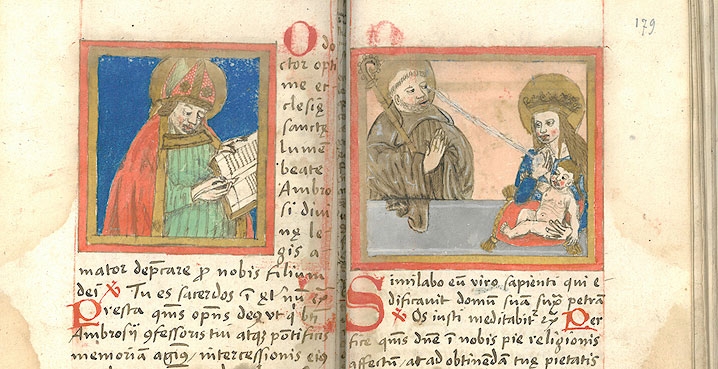 O do
ctor opti
me ec
clesię
sanctę
lumen
beate
Ambro
si divi
nę le
gis a
mator dep̄care p̄ nobis filium
dei Tu es sacerdos i
Presta qums op̄ns deq ut q bti
Ambrosij 9fessoris tui atq pontificis
memoriam agim intercessionis eiq
179
Similabo eū viro sapienti qui e
dificavit domū suā sup petrā
Os iusti meditabit Per
fice qums dne i nobis pie religionis
affectum ac ad obtinendā tuę pietatis